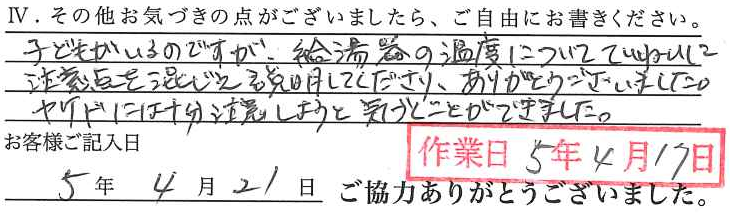 Ⅳ. その他お気づきの点がございましたら、ご自由にお書きください。
子どもがいるのですが、給湯器の温度についてていねいに
注意点を混じえ説明してくださり、ありがとうございました。
ヤケドには十分注意しようと気づくことができました。
お客様ご記入日
作業日 5年4月17日
5年 4月21日 ご協力ありがとうございました。